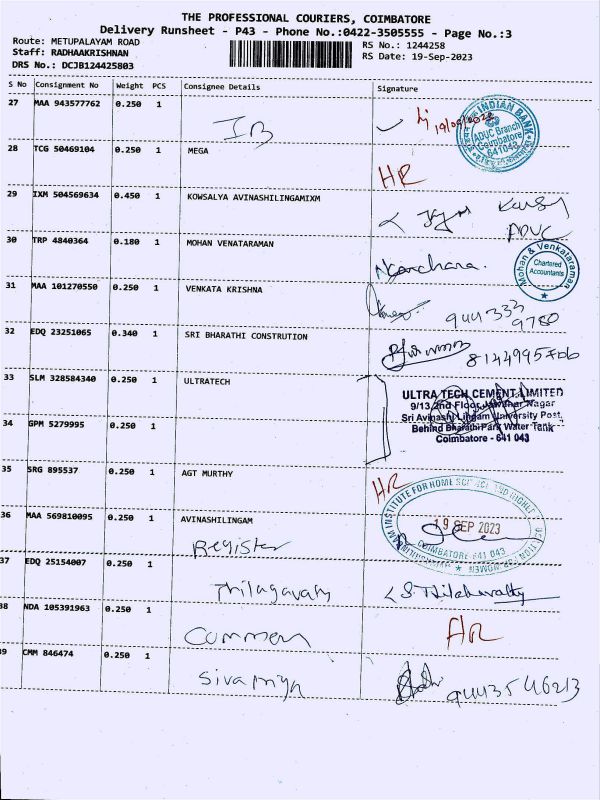 THE PROFESSIONAL COURIERS, COIMBATORE
Delivery Runsheet - P43 - Phone No.:0422-3505555 - Page No.:3
Route: METUPALAYAM ROAD
Staff: RADHAAKRISHNAN
DRS No.: DCJB124425803
RS No.: 1244258
RS Date: 19-Sep-2023
S No Consignment No Weight PCS Consignee Details Signature
27 MAA 943577762 0.250 1
IB
INDIAN BANK
ADUC Branch
Coimbatore
641043
28 TCG 50469104 0.250 1 MEGA
HR
29 IXM 504569634 0.450 1 KOWSALYA AVINASHILINGAMIXM
ADUC
30 TRP 4840364 0.180 1 MOHAN VENATARAMAN
Mohan & Venkataraman
Chartered
Accountants
31 MAA 101270550 0.250 1 VENKATA KRISHNA
9443339780
32 EDQ 23251065 0.340 1 SRI BHARATHI CONSTRUTION
33 SLM 328584340 0.250 1 ULTRATECH
ULTRA TECH CEMENT LIMITED
9/13, 2nd Floor, Jawahar Nagar
Sri Avinashi Lingam University Post,
Behind Bharathi Park Water Tank
Coimbatore - 641 043
34 GPM 5279995 0.250 1
35 SRG 895537 0.250 1 AGT MURTHY
HR
36 MAA 569810095 0.250 1 AVINASHILINGAM
Register
19 SEP 2023
COIMBATORE-641 043
37 EDQ 25154007 0.250 1
Thilagavathy
38 NDA 105391963 0.250 1
Commen
HR
39 CMM 846474 0.250 1
Sivapriya
9443546213